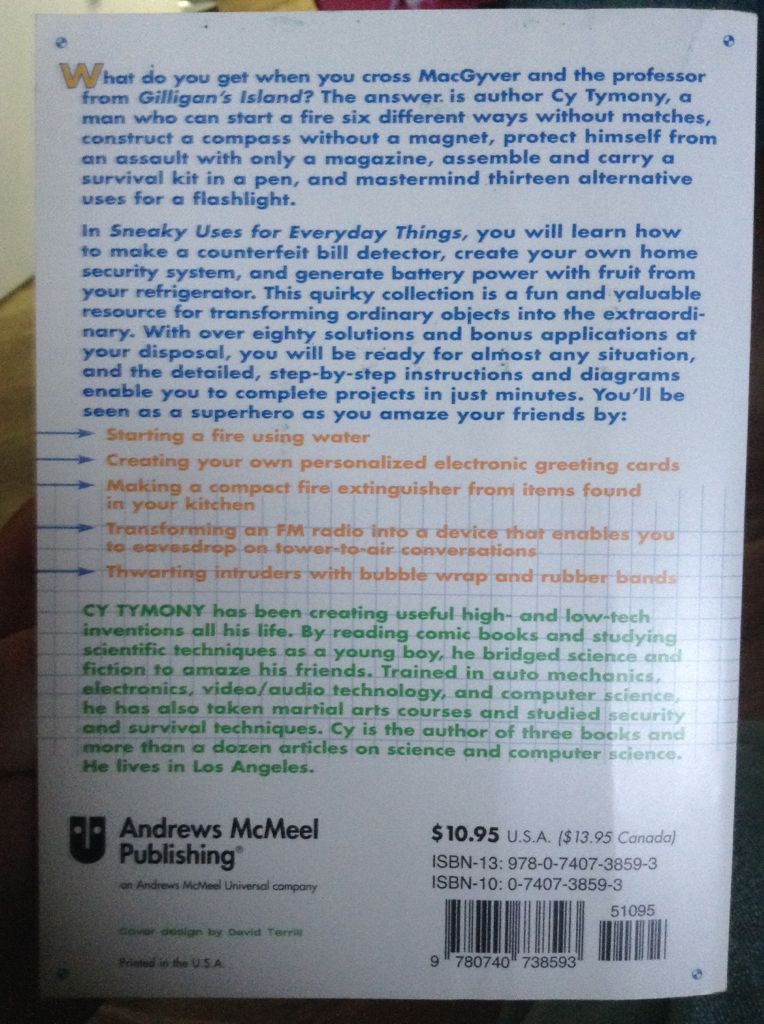 What do you get when you cross MacGyver and the professor
from Gilligan's Island? The answer is author Cy Tymony, a
man who can start a fire six different ways without matches,
construct a compass without a magnet, protect himself from
an assault with only a magazine, assemble and carry a
survival kit in a pen, and mastermind thirteen alternative
uses for a flashlight.
In Sneaky Uses for Everyday Things, you will learn how
to make a counterfeit bill detector, create your own home
security system, and generate battery power with fruit from
your refrigerator. This quirky collection is a fun and valuable
resource for transforming ordinary objects into the extraordi-
nary. With over eighty solutions and bonus applications at
your disposal, you will be ready for almost any situation,
and the detailed, step-by-step instructions and diagrams
enable you to complete projects in just minutes. You'll be
seen as a superhero as you amaze your friends by:
Starting a fire using water
Creating your own personalized electronic greeting cards
Making a compact fire extinguisher from items found
in your kitchen
Transforming an FM radio into a device that enables you
to eavesdrop on tower-to-air conversations
Thwarting intruders with bubble wrap and rubber bands
CY TYMONY has been creating useful high- and low-tech
inventions all his life. By reading comic books and studying
scientific techniques as a young boy, he bridged science and
fiction to amaze his friends. Trained in auto mechanics,
electronics, video/audio technology, and computer science,
he has also taken martial arts courses and studied security
and survival techniques. Cy is the author of three books and
more than a dozen articles on science and computer science.
He lives in Los Angeles.
Andrews McMeel
Publishing®
an Andrews McMeel Universal company
Cover design by David Terrill
Printed in the U.S.A.
$10.95 U.S.A. ($13.95 Canada)
ISBN-13: 978-0-7407-3859-3
ISBN-10: 0-7407-3859-3
51095
9 780740 738593